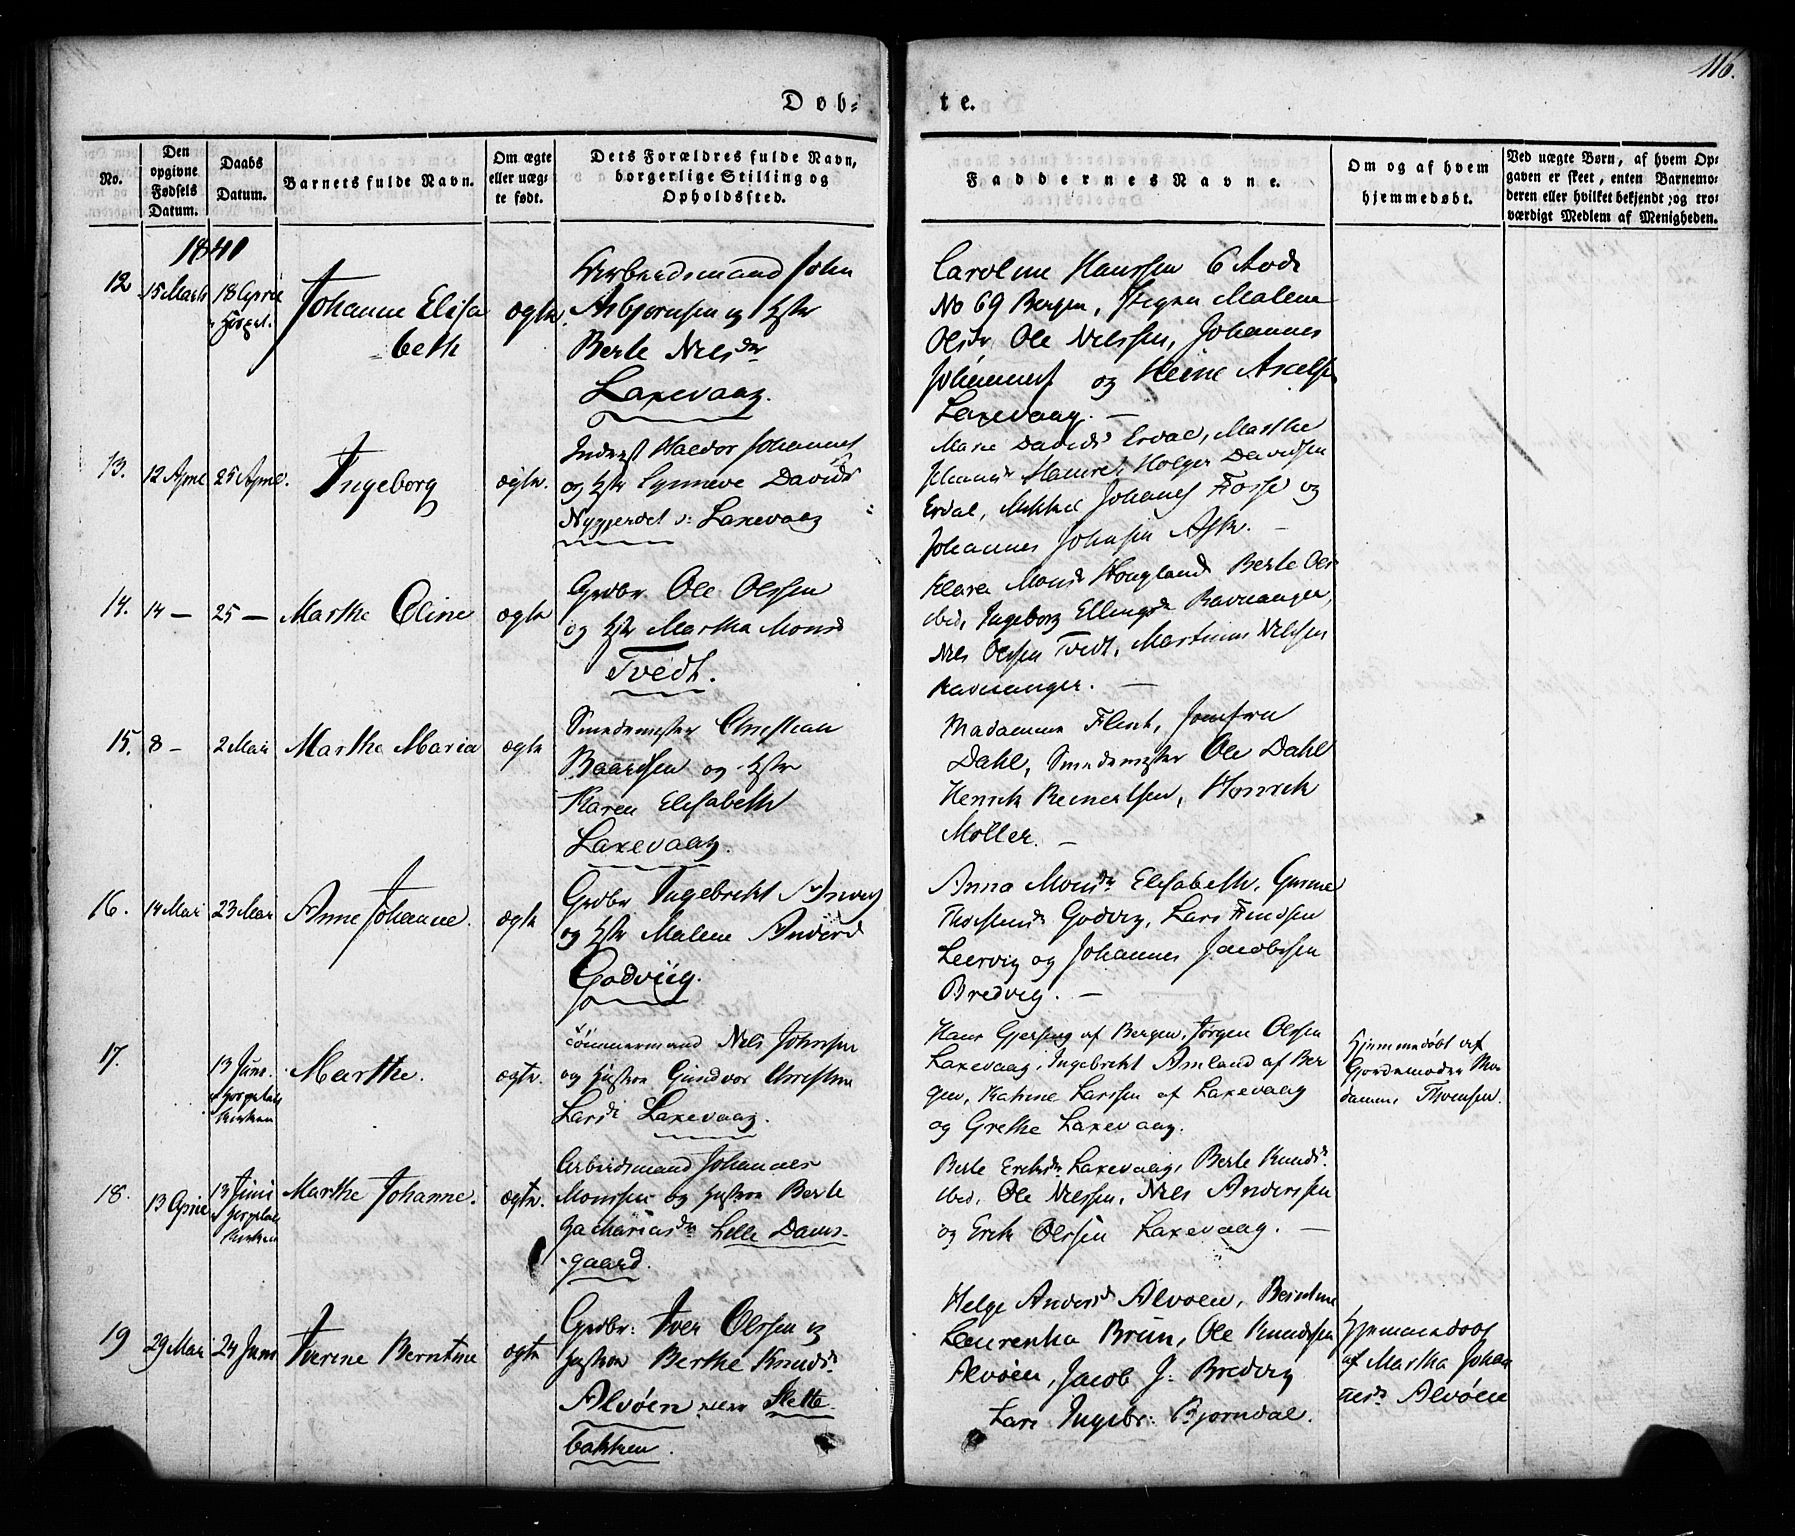 116.
Døb=
te.
No.
Den opgivne Fødsels Datum.
Daabs Datum.
Barnets fulde Navn.
Om ægte eller uægte født.
Dets Forældres fulde Navn, borgerlige Stilling og Opholdssted.
Faddernes Navne.
Om og af hvem hjemmedøbt.
Ved uægte Børn, af hvem Opgaven er skeet, enten Barnemoderen eller hvilket bekjendt og troværdigt Medlem af Menigheden.
1841
12
15 Marts
18 April
Johanne Elisa
beth
ægte.
Arbeidsmand John
Asbjørnsen og Hstr
Berte Nilsdtr
Laxevaag.
Caroline Hanssen 6 Rode
No 69 Bergen, Malene
Olsdr Ole Nilssen, Johannes
og Heine Axelsen
Laxevaag. —
13.
12 April
25 April.
Ingeborg
ægte.
Inderst Haldor Johannes
og Hstr Synneve Davids
Nygjerdet v: Laxevaag
Marie Davids Erdal, Marthe
Holger Davidsen
Erdal, Mikkel Johannes Fosse og
Johannes Johnsen Ask. —
14.
14 —
25 —
Marthe Oline
ægte
Grdbr Ole Olssen
og Hstr Martha Monsd
Tvedt.
Monsd Hougland Berte Ols
ibid, Ingeborg Ellingsd Ravnanger,
Nils Olssen Tvedt, Martinus Nilssen
Ravnanger. —
15.
8 —
2 Mai
Marthe Maria
ægte
Smedemester Christian
Baardsen og Hstr
Karen Elisabeth
Laxevaag.
Madamme Flint, Jomfru
Dahl, Smedemester Ole Dahl
Henrik Reinertsen, Henrich
Møller. —
16.
14 Mai
23 Mai
Anne Johanne.
ægte
Grdbr Ingebrekt
og Hstr Malene Andersd
Godviig.
Anna Monsdr Elisabeth, Gunne
Thorstensd Godvig, Lars Findsen
Leervig og Johannes Jacobssen
Bredvig. —
17.
13 Juni
Marthe.
ægte.
Tømmermand Nils Johnsen
og Hustru Gundvor Christine
Larsd: Laxevaag.
Hans Gjersing af Bergen, Jørgen Olssen
Laxevaag, Ingebrekt Amland af Ber
gen, Katrine Larssen af Laxevaag
og Grethe Laxevaag.
Hjemmedøbt af
Gordemoder Ma
damme
18.
13 April
13 Juni
Marthe Johanne.
ægte.
Arbeidsmand Johannes
Monssen og Hustru Berte
Zachariasdr Lille Dams-
gaard.
Berte Eriksdr Laxevaag, Berte Knuds.
ibid. Ole Nilssen, Nils Anderssen
og Erik Olssen Laxevaag. —
19
29 Mai
24 Juni
Iverine Berntine
ægte
Grdbr: Iver Olssen og
Hustru Berthe Knuds.
Alvøen eller Slette
bakken.
Helge Andersd Alvøen, Berntine
Laurentha Brun, Ole Knudssen
Alvøen, Jacob J. Bredvig
Lars Ingebr: Bjørndal.
Hjemmedøbt
af Martha Johan
nesd: Alvøen